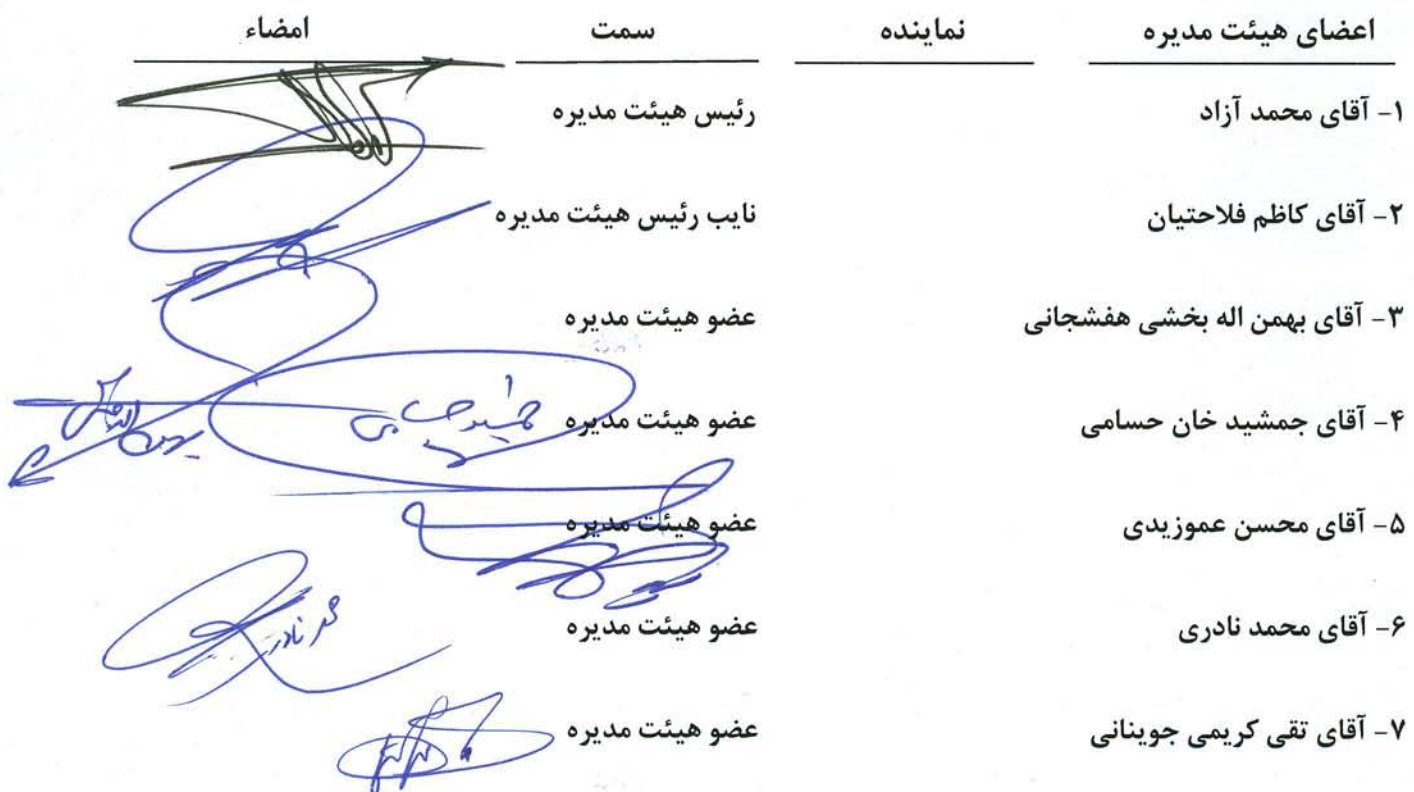 اعضای هیئت مدیره نماینده سمت امضاء
۱- آقای محمد آزاد رئیس هیئت مدیره
۲- آقای کاظم فلاحتیان نایب رئیس هیئت مدیره
۳- آقای بهمن اله بخشی هفشجانی عضو هیئت مدیره
۴- آقای جمشید خان حسامی عضو هیئت مدیره
جمشید حسامی
۵- آقای محسن عموزیدی عضو هیئت مدیره
۶- آقای محمد نادری عضو هیئت مدیره
محمد نادری
۷- آقای تقی کریمی جوینانی عضو هیئت مدیره